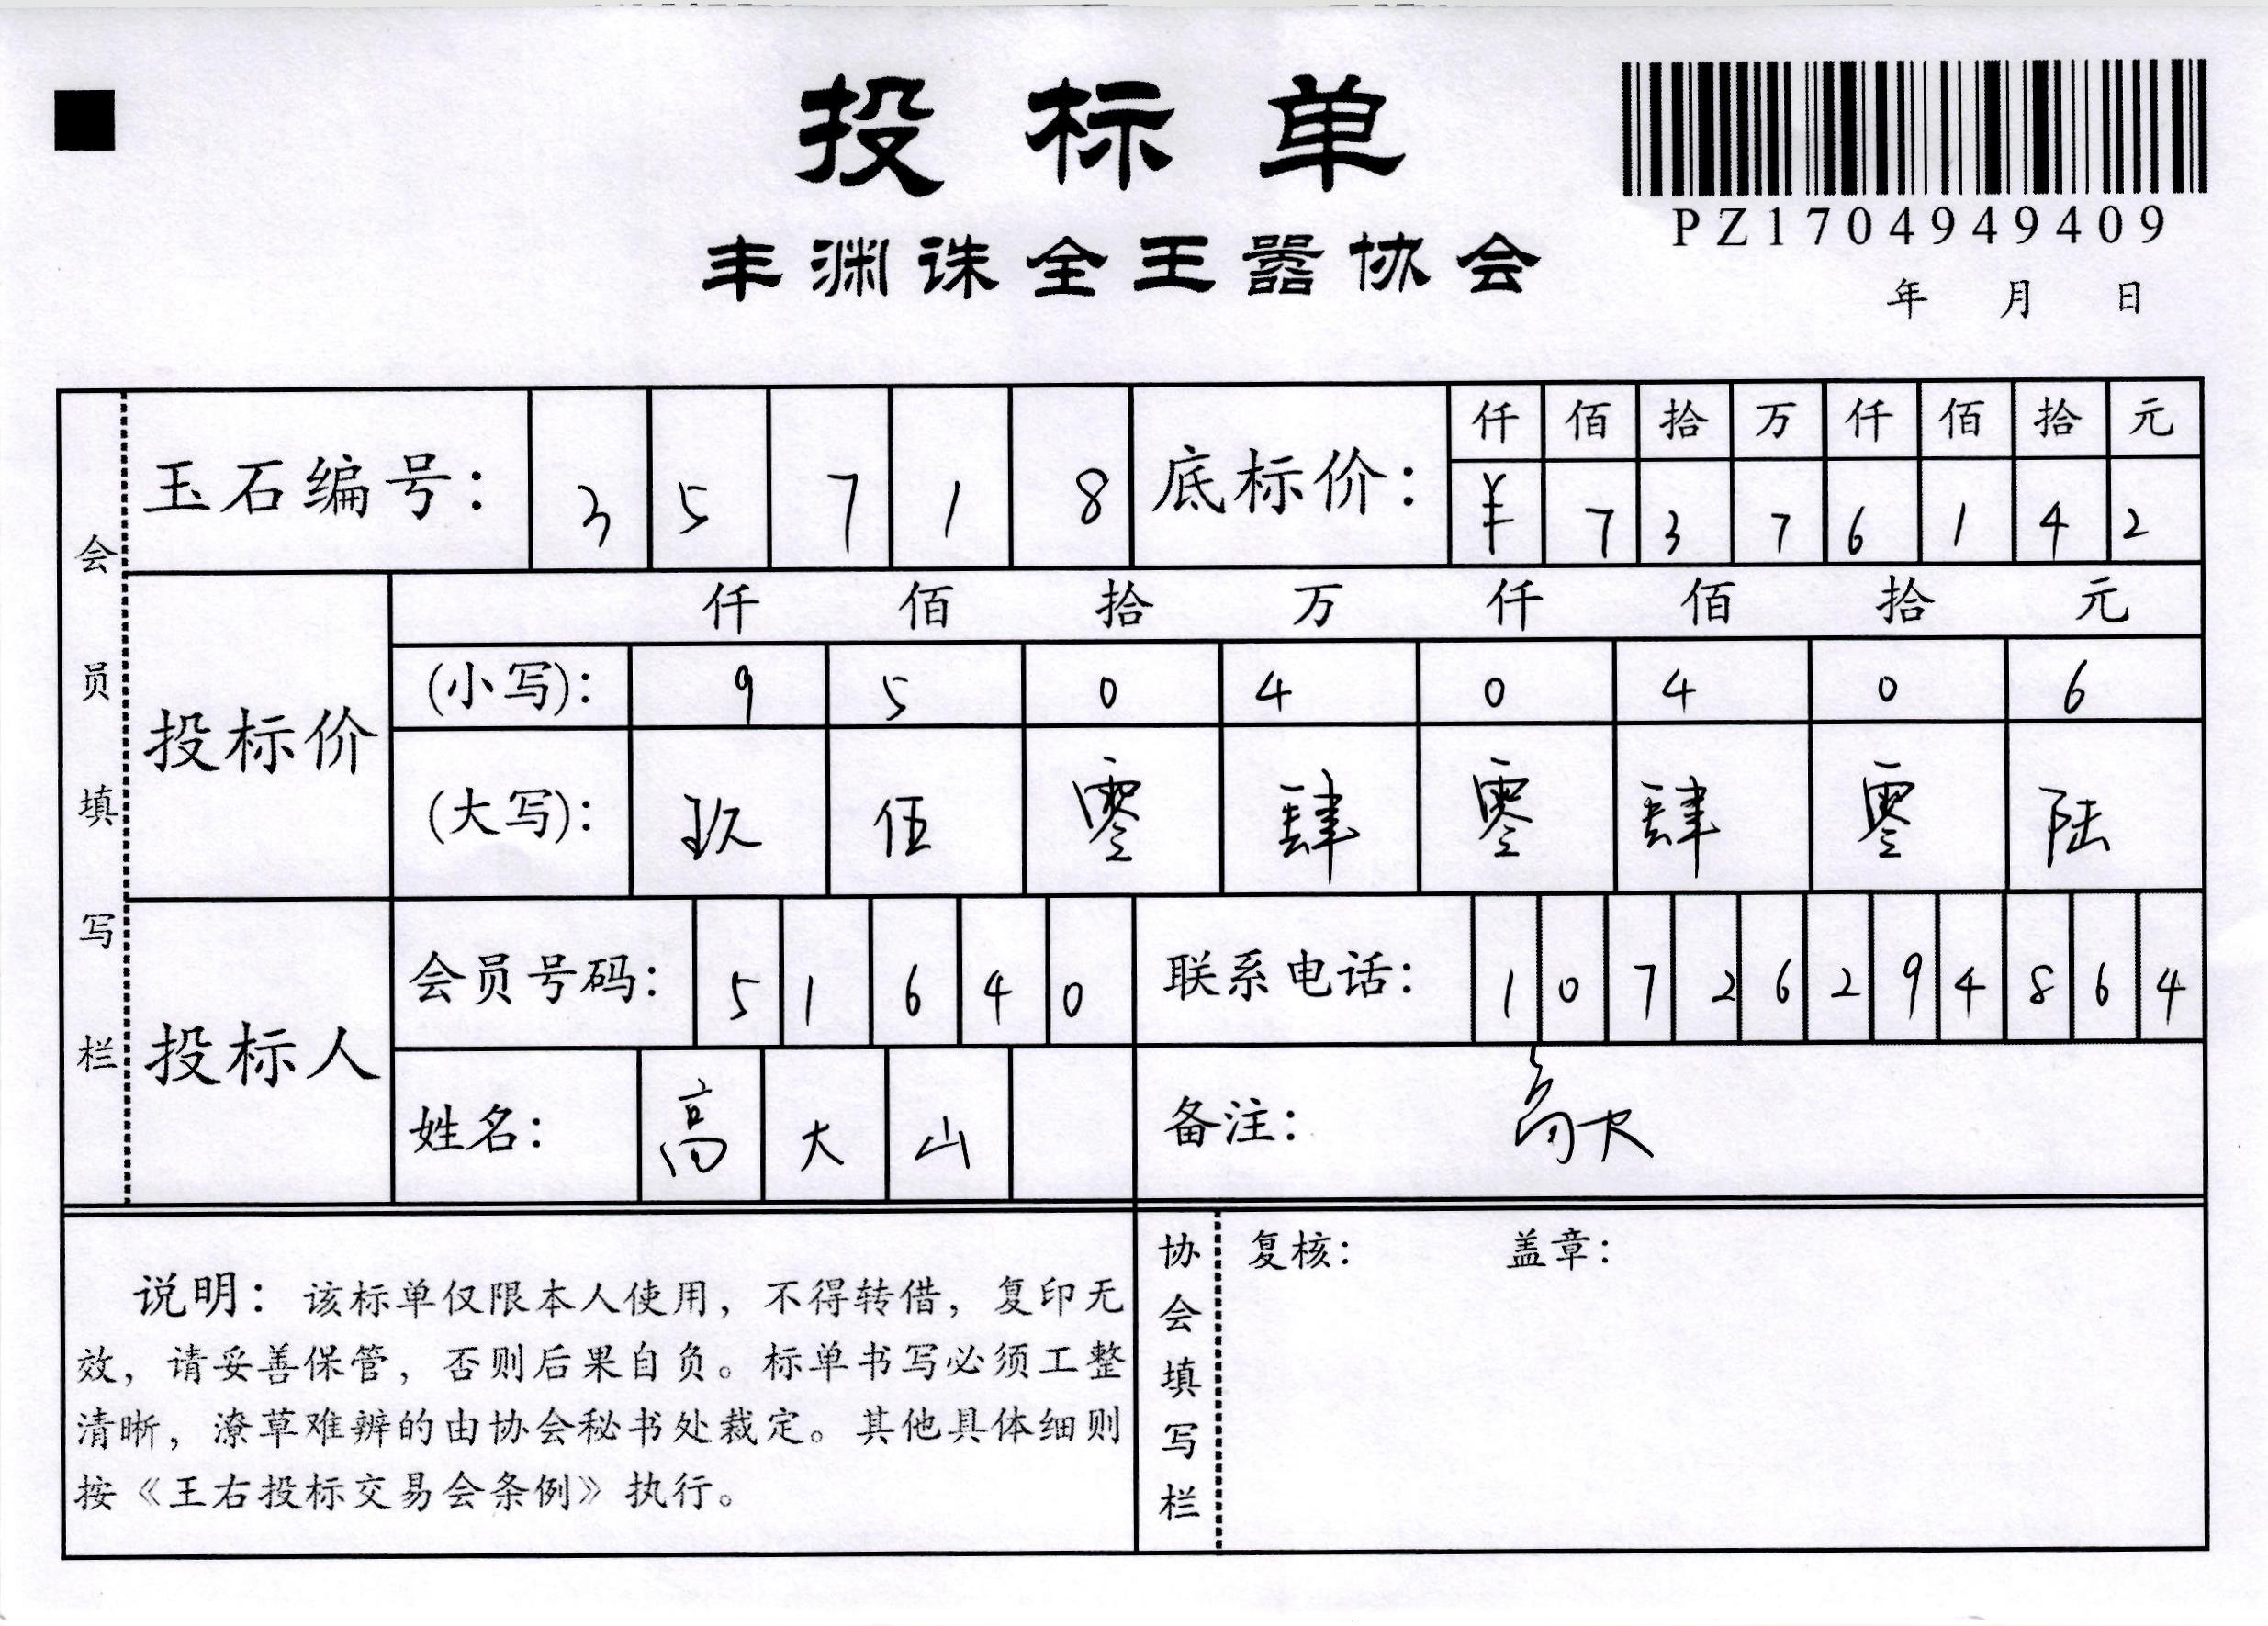 投标单
PZ1704949409
丰渊诛全王嚣协会
年 月 日
会员填写栏
玉石编号： 3 5 7 1 8 底标价： 仟 佰 拾 万 仟 佰 拾 元
¥ 7 3 7 6 1 4 2
投标价
仟 佰 拾 万 仟 佰 拾 元
(小写)： 9 5 0 4 0 4 0 6
(大写)： 玖 伍 零 肆 零 肆 零 陆
投标人
会员号码： 5 1 6 4 0 联系电话： 1 0 7 2 6 2 9 4 8 6 4
姓名： 高 大 山 备注：
说明：该标单仅限本人使用，不得转借，复印无
效，请妥善保管，否则后果自负。标单书写必须工整
清晰，潦草难辨的由协会秘书处裁定。其他具体细则
按《王右投标交易会条例》执行。
协会填写栏
复核： 盖章：